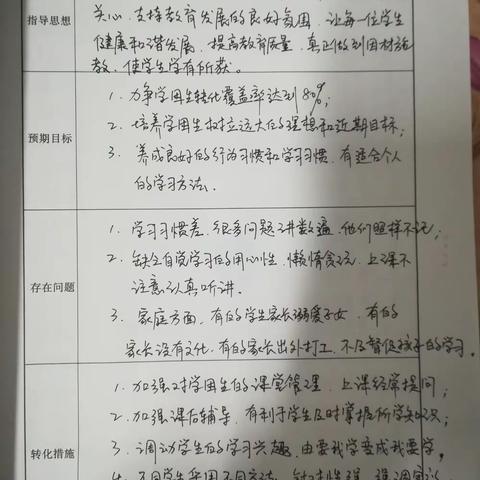 指导思想
关心、支持教育发展的良好氛围，让每一位学生
健康和谐发展，提高教育质量，真正做到因材施
教，使学生学有所获。
预期目标
1、力争学困生转化覆盖率达到80%；
2、培养学困生树立远大的理想和近期目标；
3、养成良好的行为习惯和学习习惯，有适合个人
的学习方法。
存在问题
1、学习习惯差，很多问题讲数遍，他们照样不记；
2、缺乏自觉学习的用心性，懒惰贪玩，上课不
注意认真听讲。
3、家庭方面，有的学生家长溺爱子女，有的
家长没有文化，有的家长出外打工，不及督促孩子的学习。
转化措施
1、加强对学困生的课堂管理，上课经常提问；
2、加强课后辅导，有利于学生及时掌握所学知识；
3、调动学生的学习兴趣，由要我学变成我要学。
4、不同学生采用不同方法，针对性强，强调